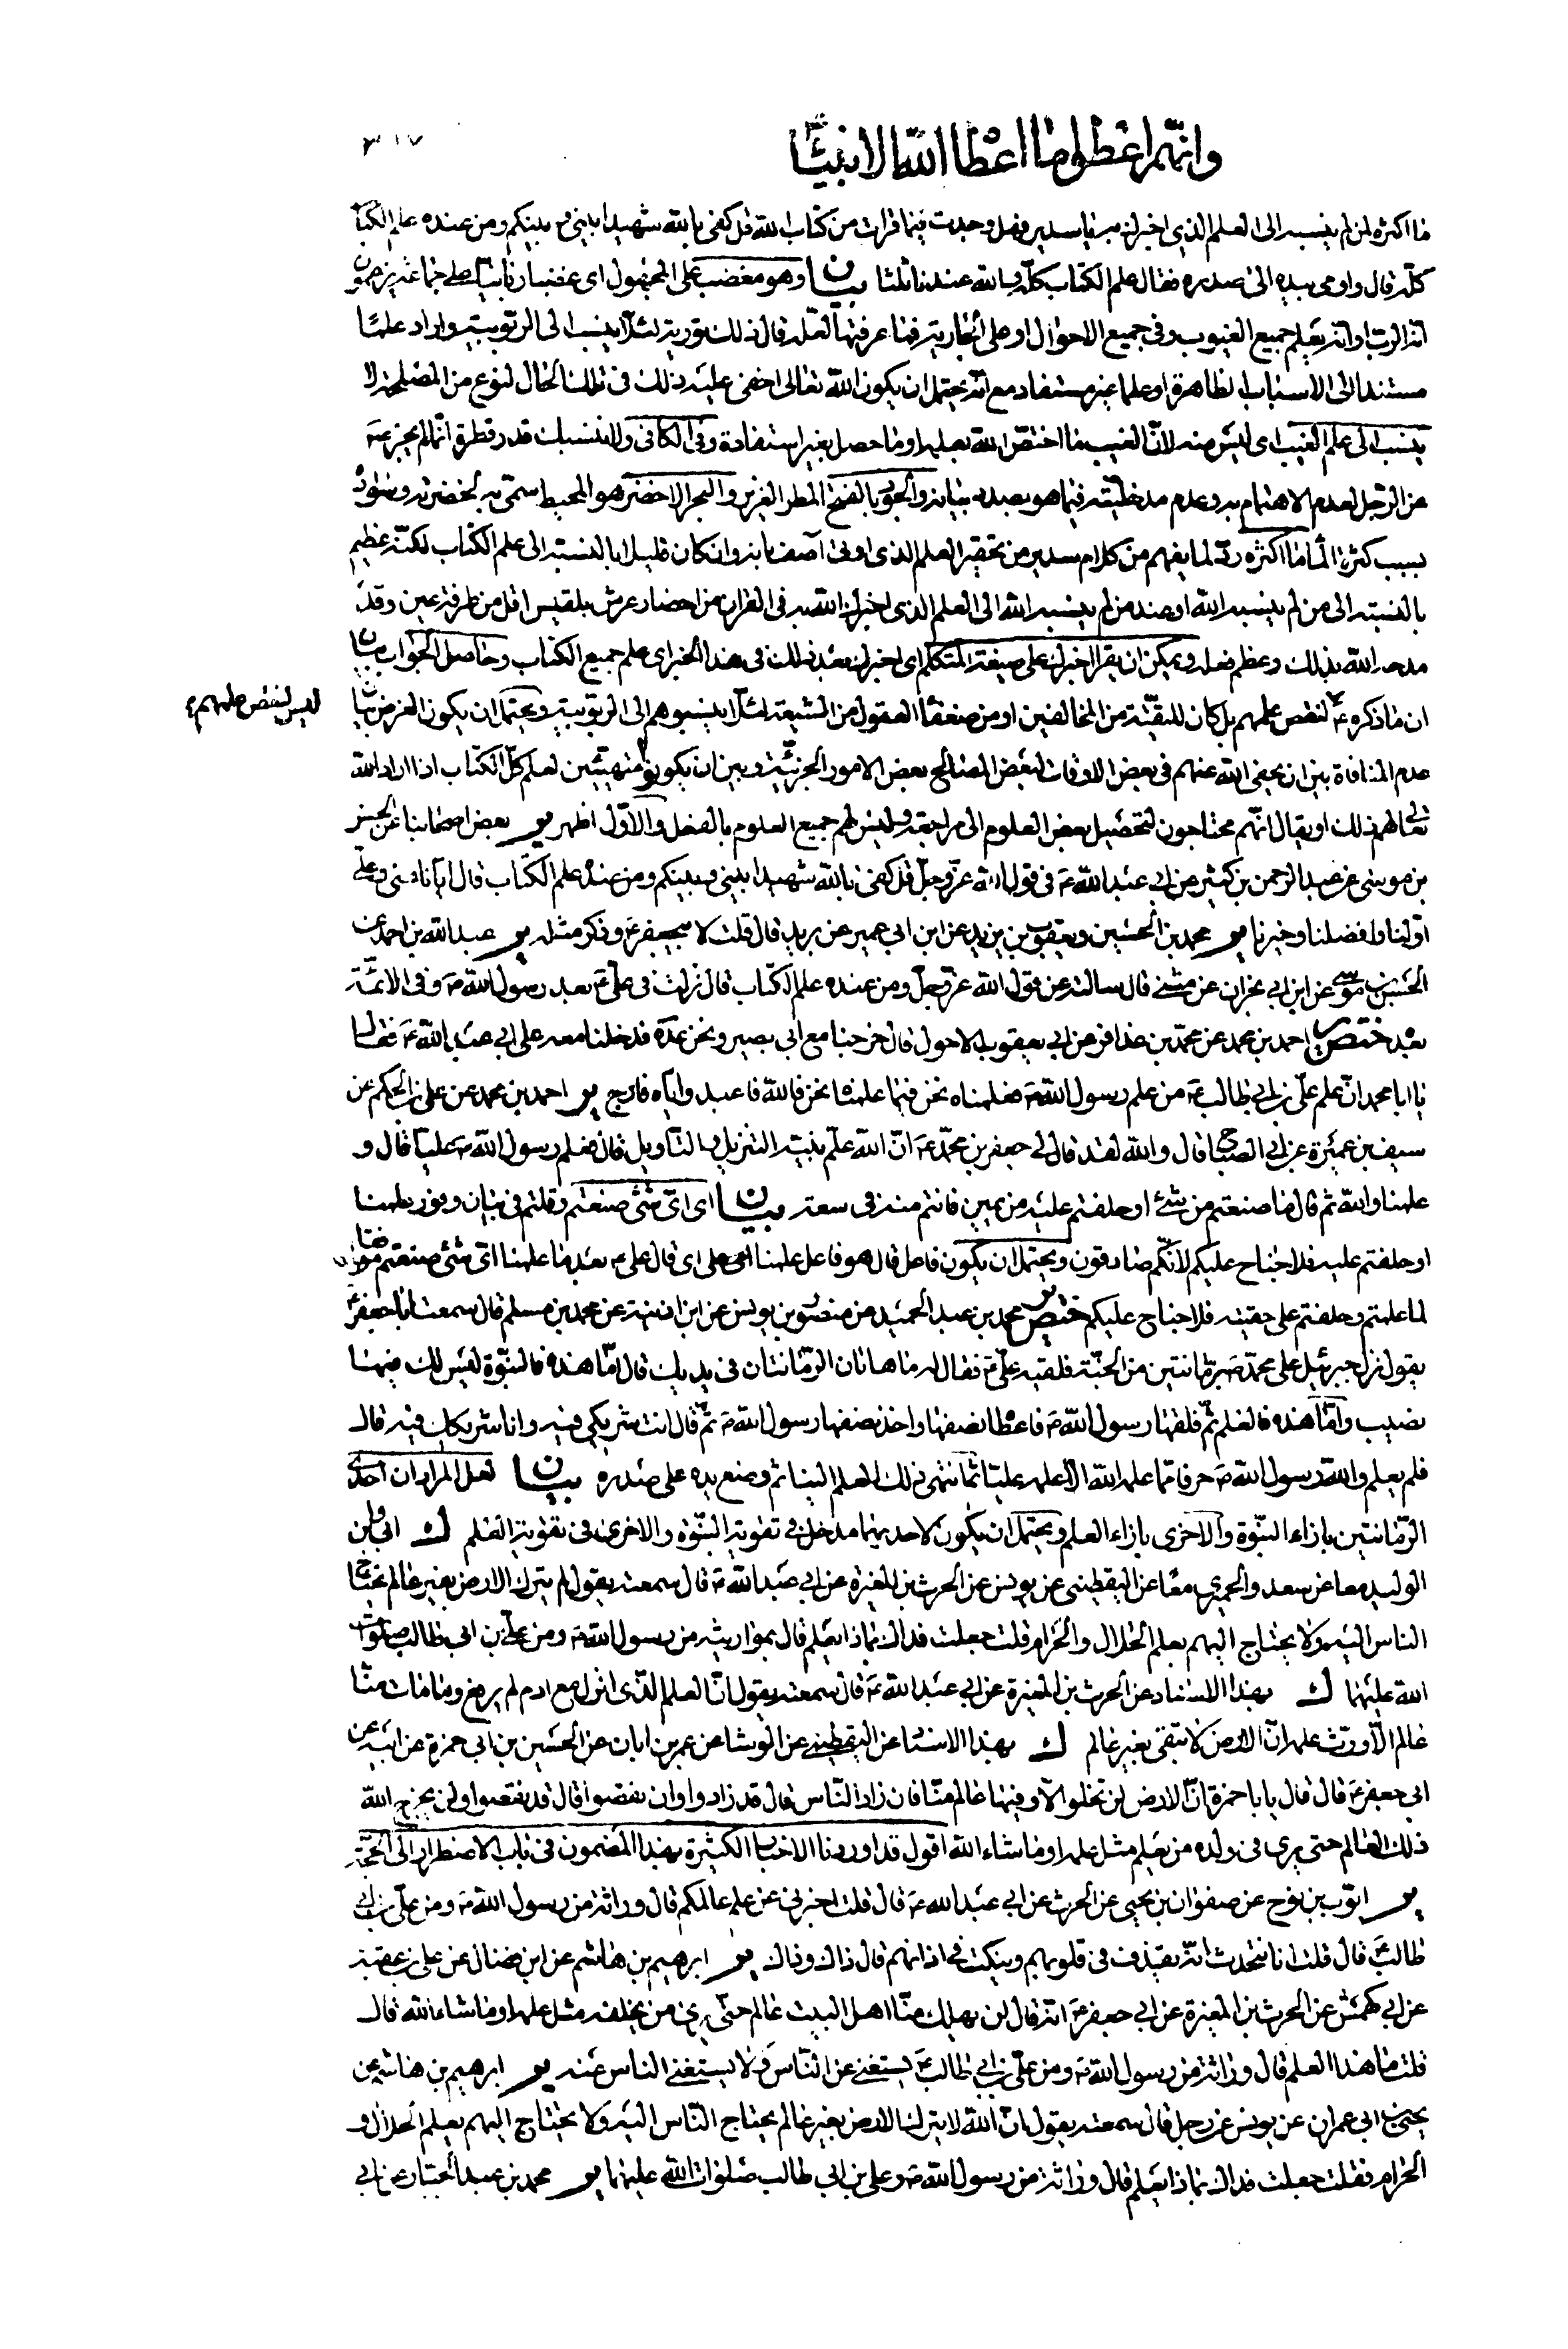 وانهم اعطوا ما اعطا الله الانبياء
٣١٧
ما اكثره لمن لم ينسبه الى العلم الذي اخبرك به يا سدير فهل وجدت فيما قرات من كتاب الله قل كفى بالله شهيدا بيني وبينكم ومن عنده علم الكتاب
كله قال واومى بيده الى صدره فقال علم الكتاب كله والله عندنا ثلثا بيان وهو مغضب على المجهول اى غضبا ربانيا لجماعة يزعمون
انه الرب او انه يعلم جميع الغيوب وفى جميع الاحوال او على الجارية فما عرفتها لعله قال ذلك تورية لئلا ينسب الى الربوبية واراد علما
مستندا الى الاسباب الظاهرة او علما غير مستفاد مع انه يحتمل ان يكون الله تعالى اخفى عليه ذلك فى تلك الحال لنوع من المصلحة لا
ينسب الى علم الغيب اى ليس منه لان الغيب ما اختص الله بعلمه او ما حصل بغير استفادة وفى الكافى ولا ينسبك قدر قطرة انما لم يجز ع
عن الرجل لعدم الاهتمام به وعدم مدخليته فيما هو بصدد بيانه والجود بالفتح المطر الغزير والبحر الاخضر هو المحيط سمى به لخضرته وسواده
بسبب كثرة الماء ما اكثره رد لما يفهم من كلام سدير من تحقير العلم الذى اوتى آصف بانه وان كان قليلا بالنسبة الى علم الكتاب لكنه عظيم
بالنسبة الى من لم ينسبه الله او صند من لم ينسبه الله الى العلم الذى اخبرك الله به فى القران من احضار عرش بلقيس اقل من طرفة عين وقد
مدحه الله بذلك وعظم فعله ويمكن ان يقرا اخبرك على صيغة المتكلم اى اخبرك بعد ذلك فى هذا الخبر اى علم جميع الكتاب وحاصل الجواب بيان
ان ما ذكره ع لنقص علمهم بل كان للتقية من المخالفين او من ضعفاء العقول من الشيعة لئلا ينسبوهم الى الربوبية ويحتمل ان يكون الغرض بيان
ليس لنقص علمهم ع
عدم المنافاة بين ان يخفى الله عنهم فى بعض الاوقات لبعض المصالح بعض الامور الجزئية وبين ان يكونوا متهيئين لعلم كل الكتاب اذا اراد الله
تعالى لهم ذلك او يقال انهم محتاجون لتحصيل بعض العلوم الى مراجعة وليس لهم جميع العلوم بالفعل والاول اظهر ير بعض اصحابنا عن الحسن
بن موسى عن عبد الرحمن بن كثير عن ابى عبد الله ع فى قول الله عز وجل قل كفى بالله شهيدا بيني وبينكم ومن عنده علم الكتاب قال ايانا عنى وعلي
اولنا وافضلنا وخيرنا ير محمد بن الحسين ويعقوب بن يزيد عن ابن ابي عمير عن بريد قال قلت لابيجعفر ع وذكر مثله ير عبد الله بن احمد عن
الحسن بن موسى عن ابن ابي نجران عن مثنى قال سالته عن قول الله عز وجل ومن عنده علم الكتاب قال نزلت فى على ع بعد رسول الله ص وفى الائمة
بعد ختص ير احمد بن محمد عن محمد بن عذافر عن ابي يعقوب الاحول قال خرجنا مع ابي بصير ونحن عدة فدخلنا معه على ابي عبد الله ع فقال
يا ابا محمد ان علم على بن ابي طالب ع من علم رسول الله ص فعلمناه نحن فيما علمنا نحن فالله فاعبد واياه فارج ير احمد بن محمد عن على بن الحكم عن
سيف بن عميرة عن ابي الصباح قال والله لقد قال لي جعفر بن محمد ع ان الله علم نبيه التنزيل والتاويل قال فعلم رسول الله ص عليا قال و
علمنا والله ثم قال ما صنعتم من شئ او حلفتم عليه من يمين فانتم منه فى سعة بيان اى اى شئ صنعتم وقلتم فى بيان وفور علمنا
او حلفتم عليه فلا جناح عليكم لانكم صادقون ويحتمل ان يكون فاعل قال هو فاعل علمنا اعنى على اى قال على ع بعد ما علمنا اى شئ صنعتم موافقا
لما علمتم وحلفتم على حقيته فلا جناح عليكم ختص ير محمد بن عبد الحميد عن منصور بن يونس عن ابن اذينة عن محمد بن مسلم قال سمعت ابا جعفر ع
يقول نزل جبرئيل على محمد ص برمانتين من الجنة فلقيه على ع فقال له ما هاتان الرمانتان فى يديك قال اما هذه فالنبوة ليس لك فيها
نصيب واما هذه فالعلم ثم فلقها رسول الله ص فاعطاه نصفها واخذ نصفها رسول الله ص ثم قال انت شريكي فيه وانا شريكك فيه قال
فلم يعلم والله رسول الله ص حرفا مما علمه الله الا علمه عليا ثم انتهى ذلك العلم الينا ثم وضع يده على صدره بيان لعل المراد ان احدى
الرمانتين بازاء النبوة والاخرى بازاء العلم ويحتمل ان يكون لاحديهما مدخل في تقوية النبوة والاخرى فى تقوية العلم ك ابي وابن
الوليد معا عن سعد والحميري معا عن اليقطينى عن يونس عن الحرث بن المغيرة عن ابي عبد الله ع قال سمعته يقول لم يترك الارض بغير عالم يحتاج
الناس اليه ولا يحتاج اليهم يعلم الحلال والحرام قلت جعلت فداك بماذا يعلم قال بمواريثه من رسول الله ص ومن علي بن ابي طالب صلوات
الله عليهما ك بهذا الاسناد عن الحرث بن المغيرة عن ابي عبد الله ع قال سمعته يقول ان العلم الذى انزل مع ادم لم يرفع وما مات منا
عالم الا ورث علمه ان الارض لا تبقى بغير عالم ك بهذا الاسناد عن اليقطيني عن الوشا عن عمر بن ابان عن الحسين بن ابي حمزة عن ابيه عن
ابي جعفر ع قال قال يا با حمزة ان الارض لن تخلو الا وفيها عالم منا فان زاد الناس قال قد زادوا وان نقصوا قال قد نقصوا ولن يخرج الله
ذلك العالم حتى يرى فى ولده من يعلم مثل علمه او ما شاء الله اقول قد اوردنا الاخبار الكثيرة بهذا المضمون فى باب الاضطرار الى الحجة
ير ايوب بن نوح عن صفوان بن يحيى عن الحرث عن ابي عبد الله ع قال قلت اخبرني عن علم عالمكم قال وراثة من رسول الله ص ومن علي بن ابي
طالب ع قال قلت انا نتحدث انه يقذف فى قلوبهم وينكت فى اذانهم قال ذاك وذاك ير ابرهيم بن هاشم عن ابن فضال عن على بن عقبة
عن ابي كهمش عن الحرث بن المغيرة عن ابي جعفر ع انه قال لن يهلك منا اهل البيت عالم حتى يرى من يخلفه مثل علمه او ما شاء الله قال
قلت ما هذا العلم قال وراثة من رسول الله ص ومن علي بن ابي طالب ع يستغنى عن الناس ولا يستغنى الناس عنه ير ابرهيم بن هاشم عن
يحيى بن ابي عمران عن يونس عن رجل قال سمعته يقول ان الله لا يترك الارض بغير عالم يحتاج الناس اليه ولا يحتاج اليهم يعلم الحلال و
الحرام فقلت جعلت فداك بماذا يعلم قال وراثة من رسول الله ص وعلي بن ابي طالب صلوات الله عليهما ير محمد بن عبد الجبار عن ابي